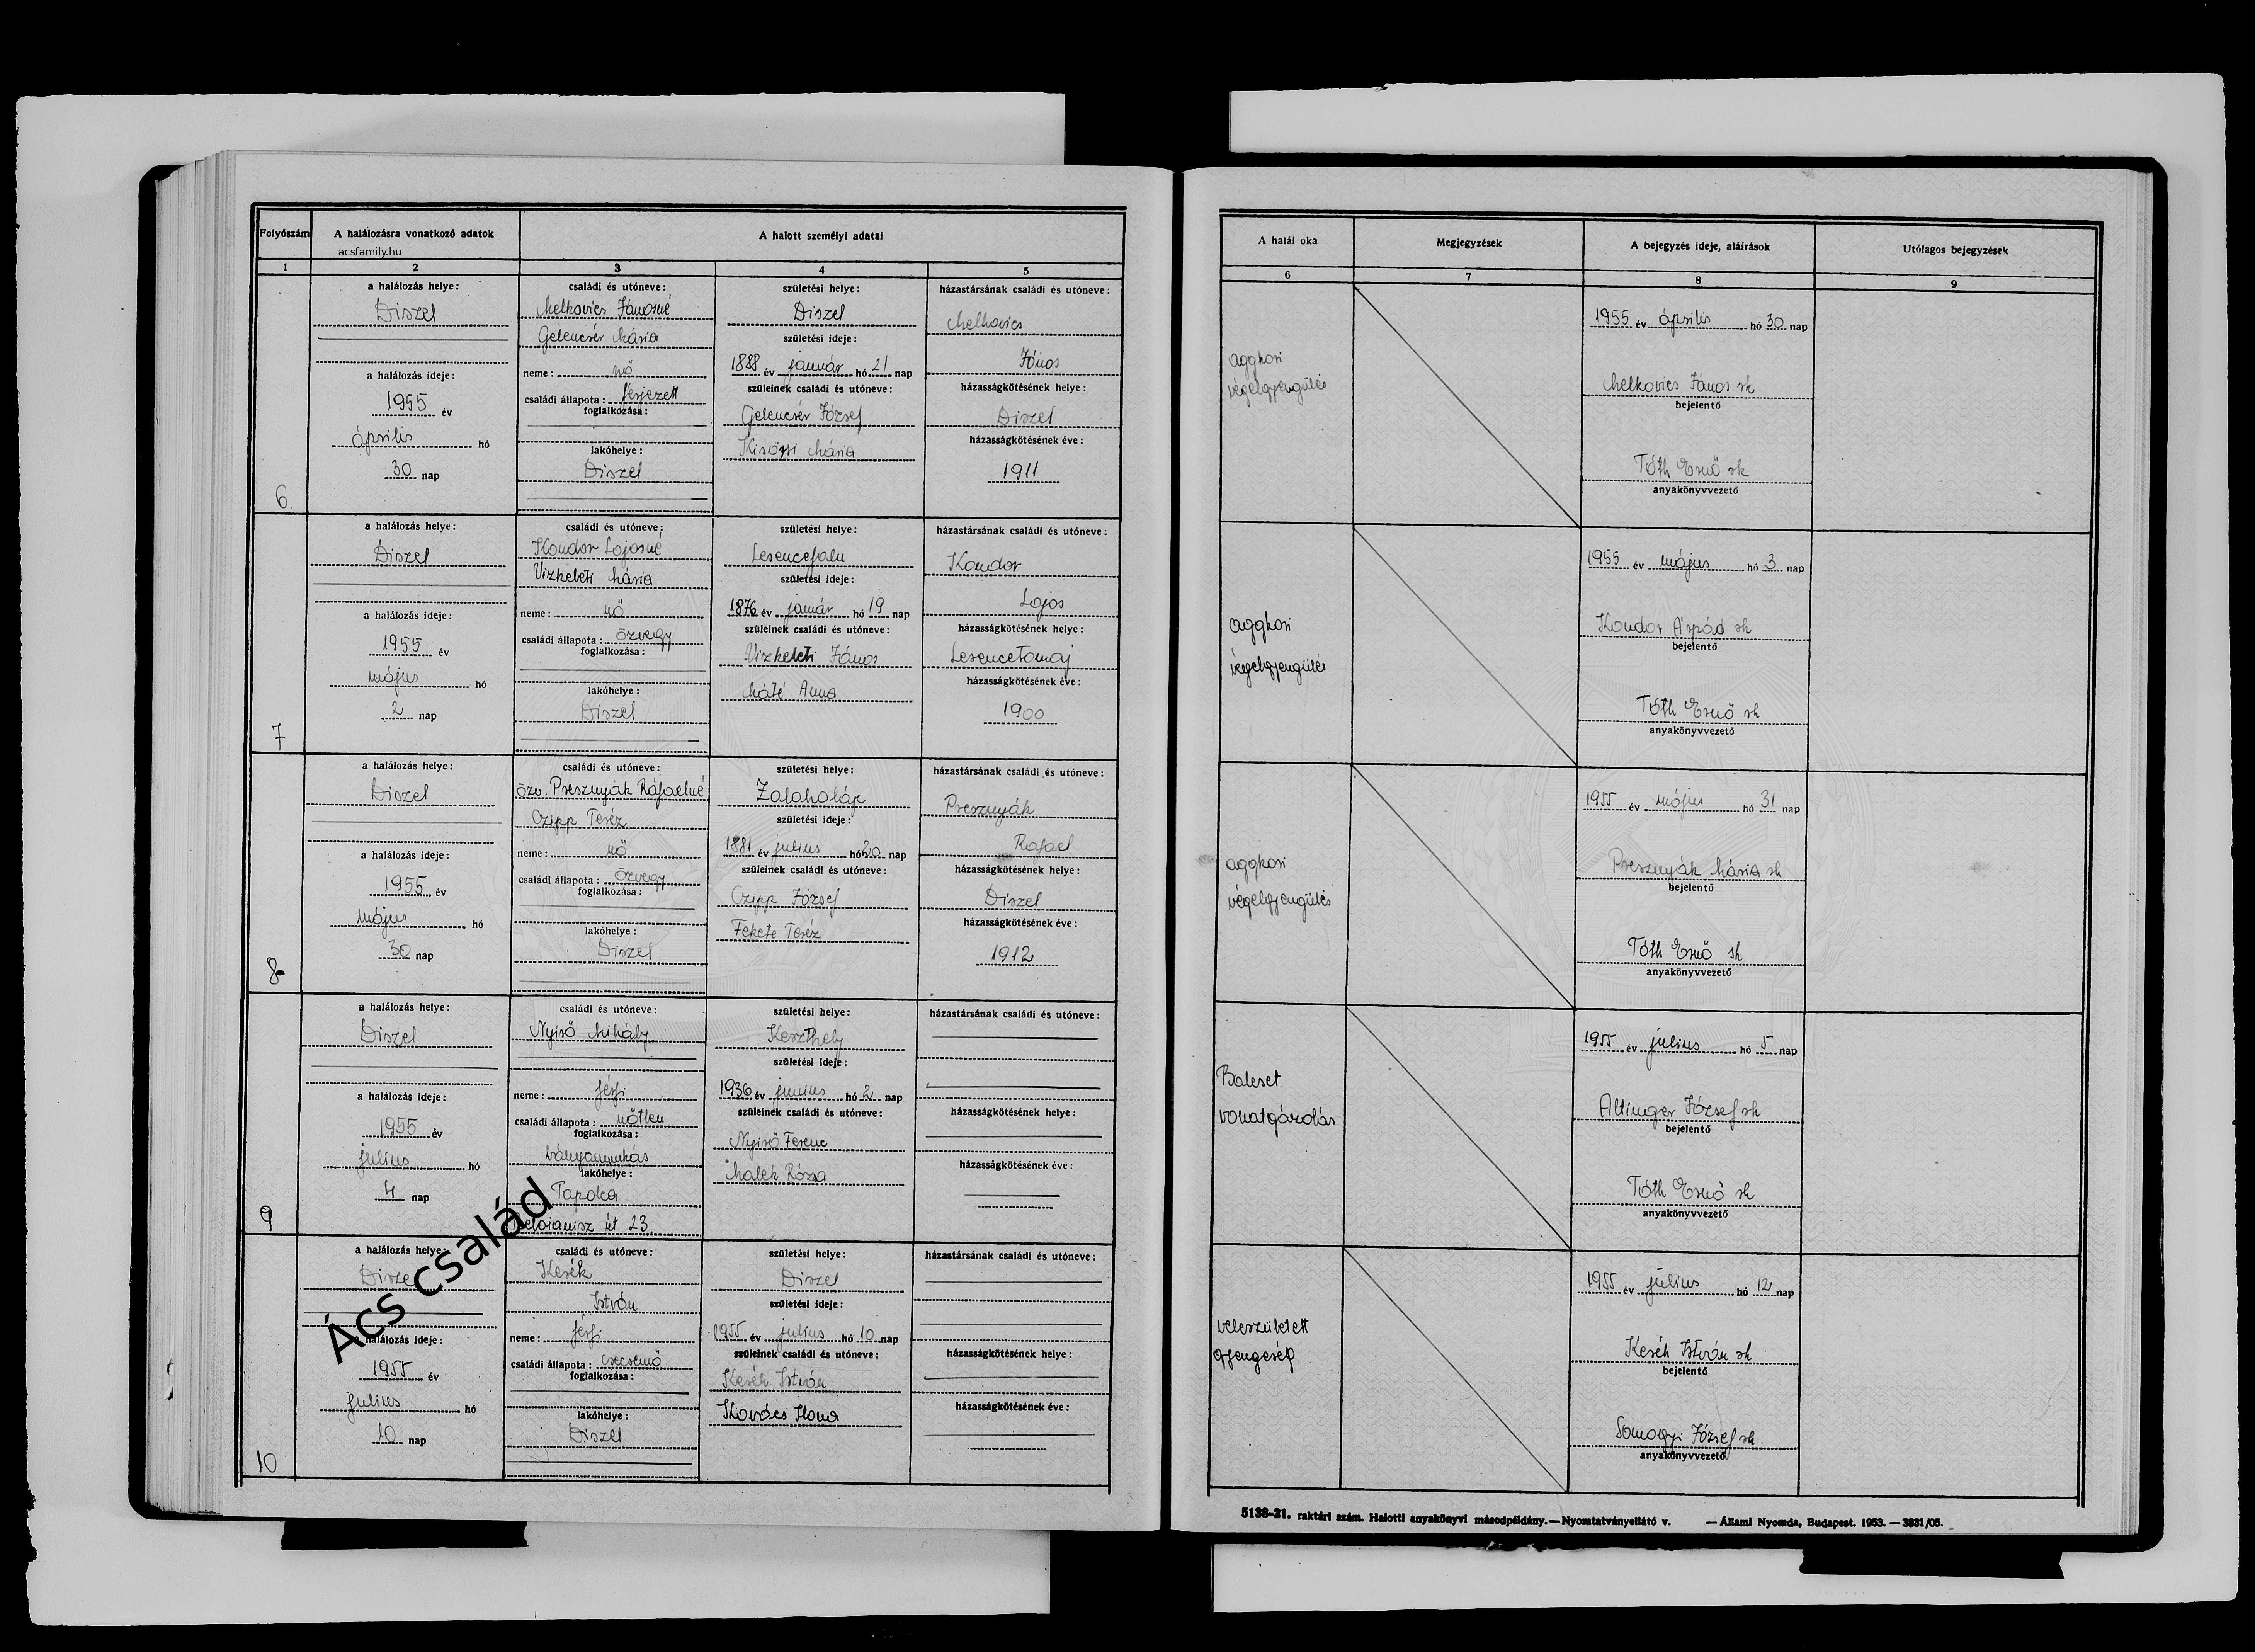 Folyószám
A halálozásra vonatkozó adatok
acsfamily.hu
A halott személyi adatai
1
2
3
4
5
a halálozás helye:
Diszel
a halálozás ideje:
1955 év
április hó
30 nap
6.
családi és utóneve:
Melkovics Jánosné
Gelencsér Mária
neme: nő
családi állapota: férjezett
foglalkozása:
lakóhelye:
Diszel
születési helye:
Diszel
születési ideje:
1888 év január hó 21 nap
szüleinek családi és utóneve:
Gelencsér József
Kisörsi Mária
házastársának családi és utóneve:
Melkovics
János
házasságkötésének helye:
Diszel
házasságkötésének éve:
1911
a halálozás helye:
Diszel
a halálozás ideje:
1955 év
május hó
2 nap
7
családi és utóneve:
Kondor Lajosné
Vizheleti Mária
neme: nő
családi állapota: özvegy
foglalkozása:
lakóhelye:
Diszel
születési helye:
Lesencefalu
születési ideje:
1876 év január hó 19 nap
szüleinek családi és utóneve:
Vizheleti János
Máté Anna
házastársának családi és utóneve:
Kondor
Lajos
házasságkötésének helye:
Lesencetomaj
házasságkötésének éve:
1900
a halálozás helye:
Diszel
a halálozás ideje:
1955 év
május hó
30 nap
8
családi és utóneve:
özv. Presznyák Ráfaelné
Czipp Teréz
neme: nő
családi állapota: özvegy
foglalkozása:
lakóhelye:
Diszel
születési helye:
Zalahaláp
születési ideje:
1881 év julius hó 20 nap
szüleinek családi és utóneve:
Czipp József
Fekete Teréz
házastársának családi és utóneve:
Presznyák
Rafael
házasságkötésének helye:
Diszel
házasságkötésének éve:
1912
a halálozás helye:
Diszel
a halálozás ideje:
1955 év
julius hó
4 nap
9
családi és utóneve:
Nyirő Mihály
neme: férfi
családi állapota: nőtlen
foglalkozása:
bányamunkás
lakóhelye:
Tapolca
Beloianisz út 23.
születési helye:
Keszthely
születési ideje:
1936 év junius hó 2 nap
szüleinek családi és utóneve:
Nyirő Ferenc
Malek Róza
házastársának családi és utóneve:
házasságkötésének helye:
házasságkötésének éve:
a halálozás helye:
Diszel
a halálozás ideje:
1955 év
julius hó
10 nap
10
családi és utóneve:
Kesék
István
neme: férfi
családi állapota: csecsemő
foglalkozása:
lakóhelye:
Diszel
születési helye:
Diszel
születési ideje:
1955 év julius hó 10 nap
szüleinek családi és utóneve:
Keséh István
Kovács Ilona
házastársának családi és utóneve:
házasságkötésének helye:
házasságkötésének éve:
Ács család
A halál oka
Megjegyzések
A bejegyzés ideje, aláírások
Utólagos bejegyzések
6
7
8
9
aggkori
végelgyengülés
1955 év április hó 30 nap
Melkovics János sk
bejelentő
Tóth Ernő sk
anyakönyvvezető
aggkori
végelgyengülés
1955 év május hó 3 nap
Kondor Árpád sk
bejelentő
Tóth Ernő sk
anyakönyvvezető
aggkori
végelgyengülés
1955 év május hó 31 nap
Presznyák Mária sk
bejelentő
Tóth Ernő sk
anyakönyvvezető
Baleset
vonatgázolás
1955 év július hó 5 nap
Altinger József sk
bejelentő
Tóth Ernő sk
anyakönyvvezető
veleszületett
gyengeség
1955 év július hó 12 nap
Keséh István sk
bejelentő
Somogyi József sk.
anyakönyvvezető
5138-21. raktári szám. Halotti anyakönyvi másodpéldány.—Nyomtatványellátó v. —Állami Nyomda, Budapest. 1953. —3831/05.